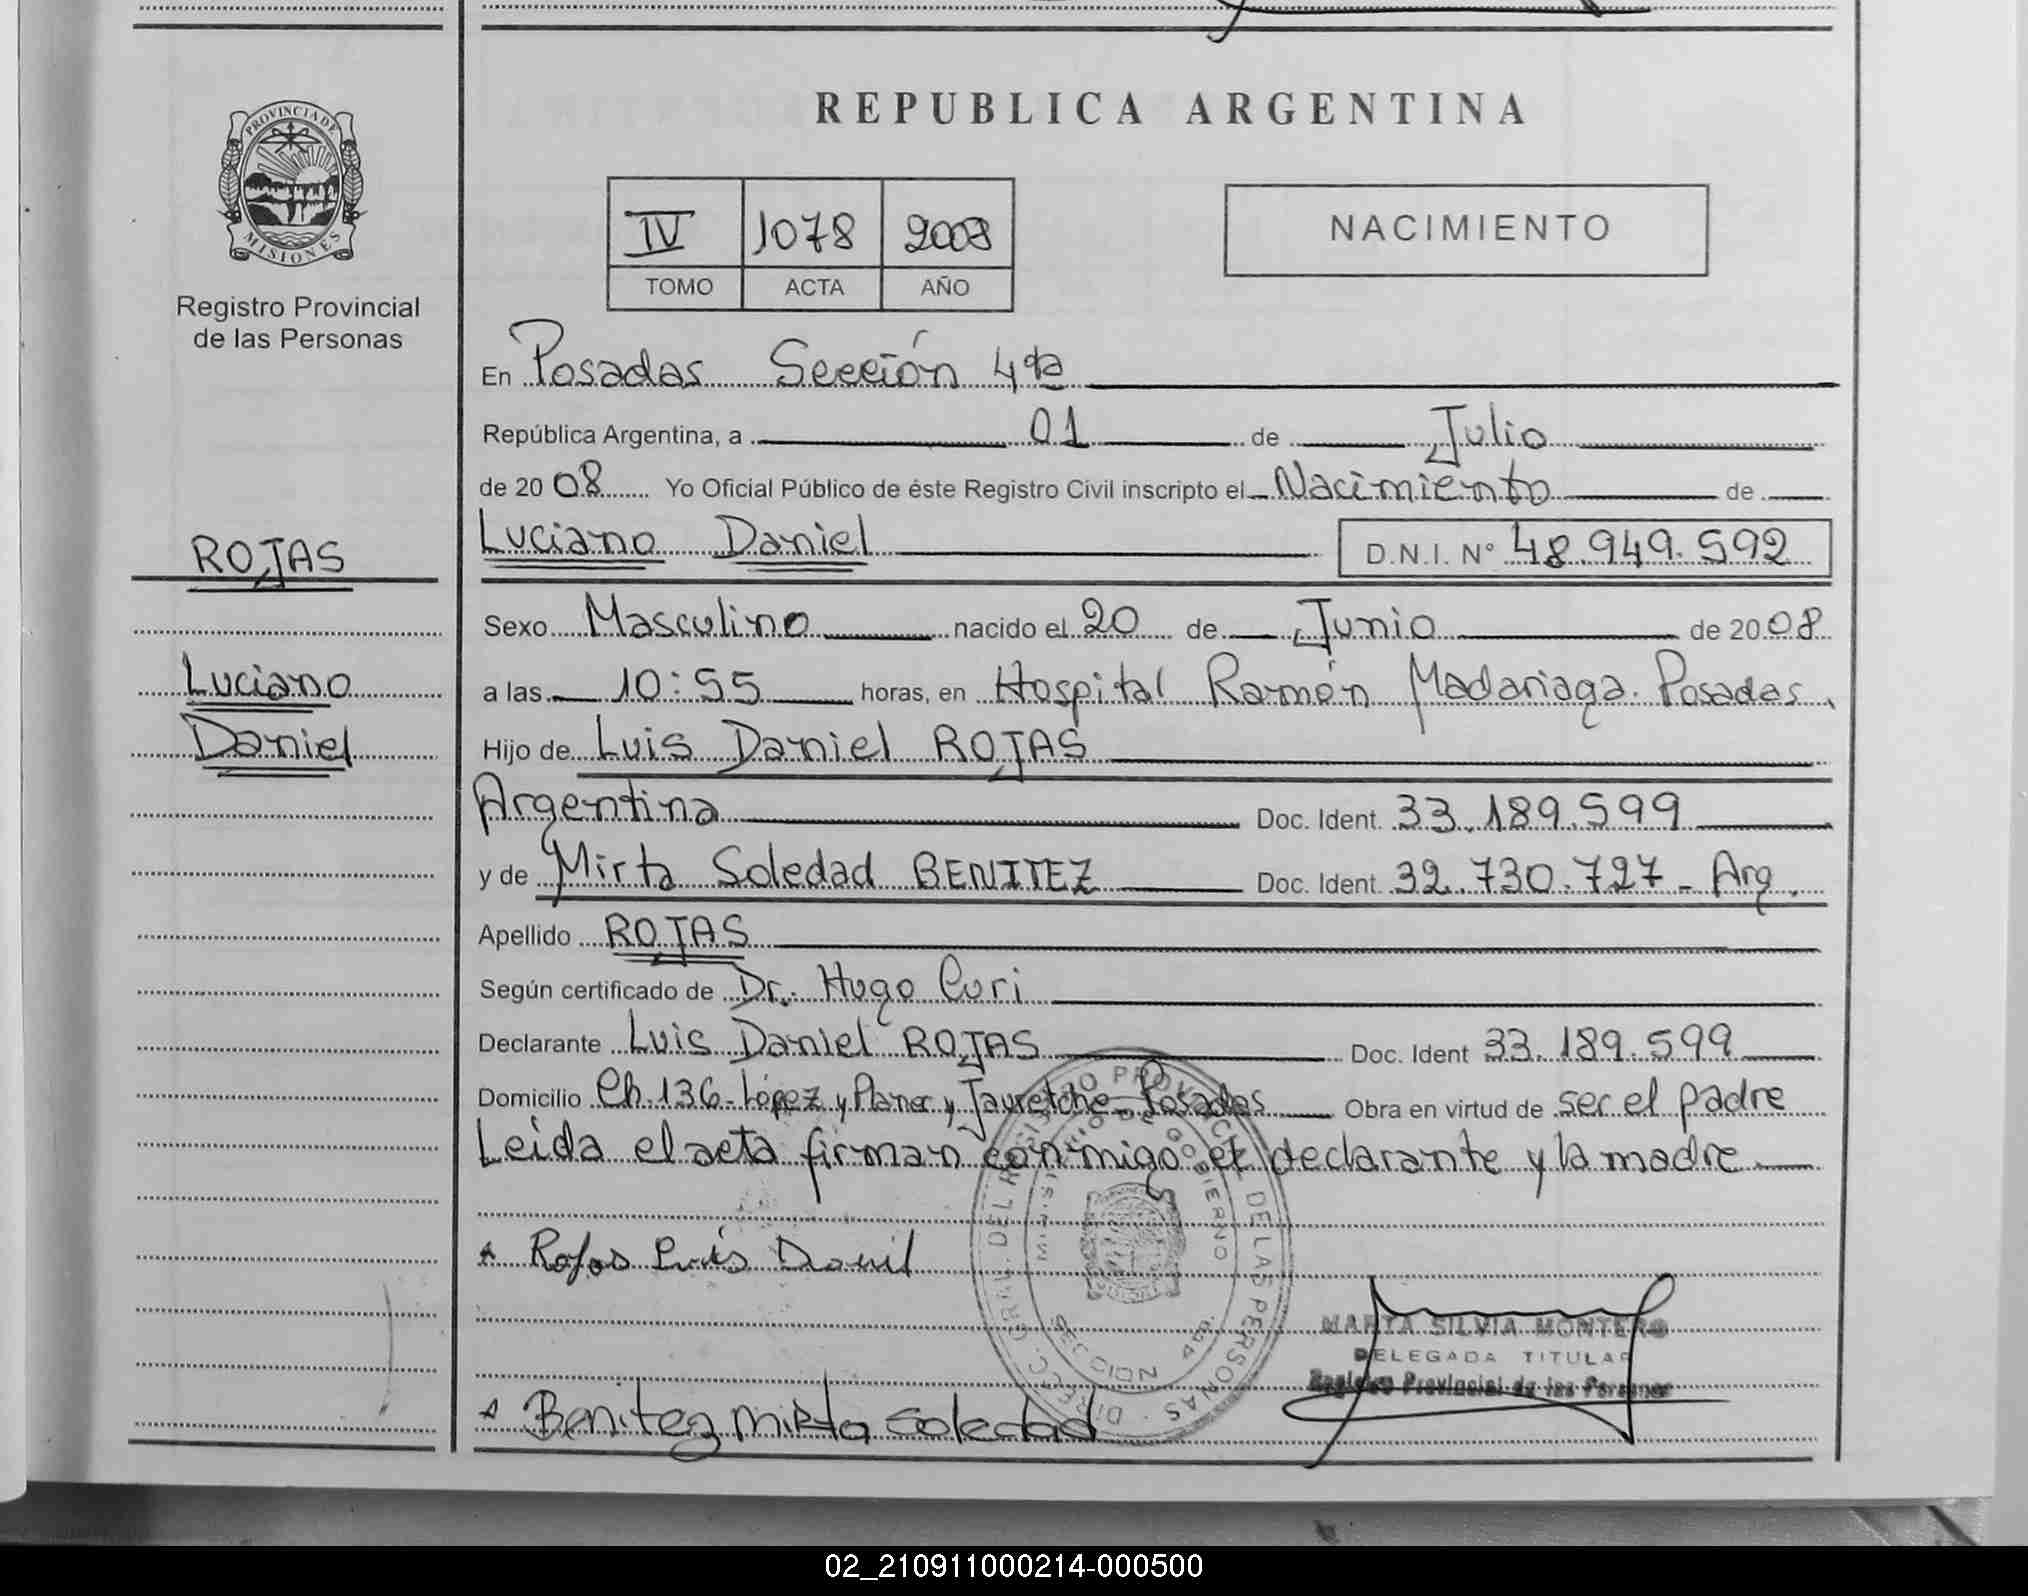 REPUBLICA ARGENTINA
PROVINCIA DE
MISIONES
Registro Provincial
de las Personas
IV 1078 2008
TOMO ACTA AÑO
NACIMIENTO
En Posadas Sección 4ta
República Argentina, a 01 de Julio
de 2008 Yo Oficial Público de éste Registro Civil inscripto el Nacimiento de
ROJAS
Luciano Daniel D.N.I. N° 48.949.592
Sexo Masculino nacido el 20 de Junio de 2008
Luciano
a las 10:55 horas, en Hospital Ramón Madariaga. Posadas.
Daniel
Hijo de Luis Daniel ROJAS
Argentina Doc. Ident. 33.189.599
y de Mirta Soledad BENITEZ Doc. Ident. 32.730.727 - Arg.
Apellido ROJAS
Según certificado de Dr. Hugo Curi
Declarante Luis Daniel ROJAS Doc. Ident 33.189.599
Domicilio Ch.136-López y Planes y Jauretche-Posadas Obra en virtud de ser el padre
Leida el acta firman conmigo el declarante y la madre
Rojas Luis Daniel
DIRECC. GRAL. DEL REGISTRO PROVINCIAL DE LAS PERSONAS
MINISTERIO DE GOBIERNO
MARTA SILVIA MONTERO
DELEGADA TITULAR
Registro Provincial de las Personas
Benitez Mirta Soledad
02_210911000214-000500